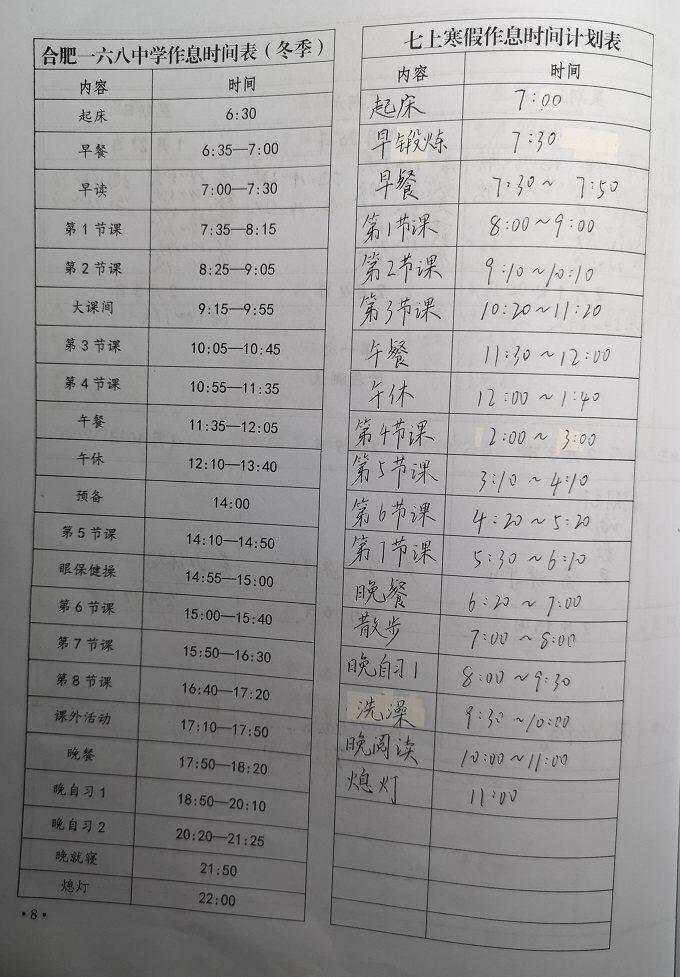 合肥一六八中学作息时间表（冬季）
内容 时间
起床 6:30
早餐 6:35—7:00
早读 7:00—7:30
第1节课 7:35—8:15
第2节课 8:25—9:05
大课间 9:15—9:55
第3节课 10:05—10:45
第4节课 10:55—11:35
午餐 11:35—12:05
午休 12:10—13:40
预备 14:00
第5节课 14:10—14:50
眼保健操 14:55—15:00
第6节课 15:00—15:40
第7节课 15:50—16:30
第8节课 16:40—17:20
课外活动 17:10—17:50
晚餐 17:50—18:20
晚自习1 18:50—20:10
晚自习2 20:20—21:25
晚就寝 21:50
熄灯 22:00
·8·
七上寒假作息时间计划表
内容 时间
起床 7:00
早锻炼 7:30
早餐 7:30~7:50
第1节课 8:00~9:00
第2节课 9:10~10:10
第3节课 10:20~11:20
午餐 11:30~12:00
午休 12:00~1:40
第4节课 2:00~3:00
第5节课 3:10~4:10
第6节课 4:20~5:20
第7节课 5:30~6:10
晚餐 6:20~7:00
散步 7:00~8:00
晚自习1 8:00~9:30
洗澡 9:30~10:00
晚阅读 10:00~11:00
熄灯 11:00